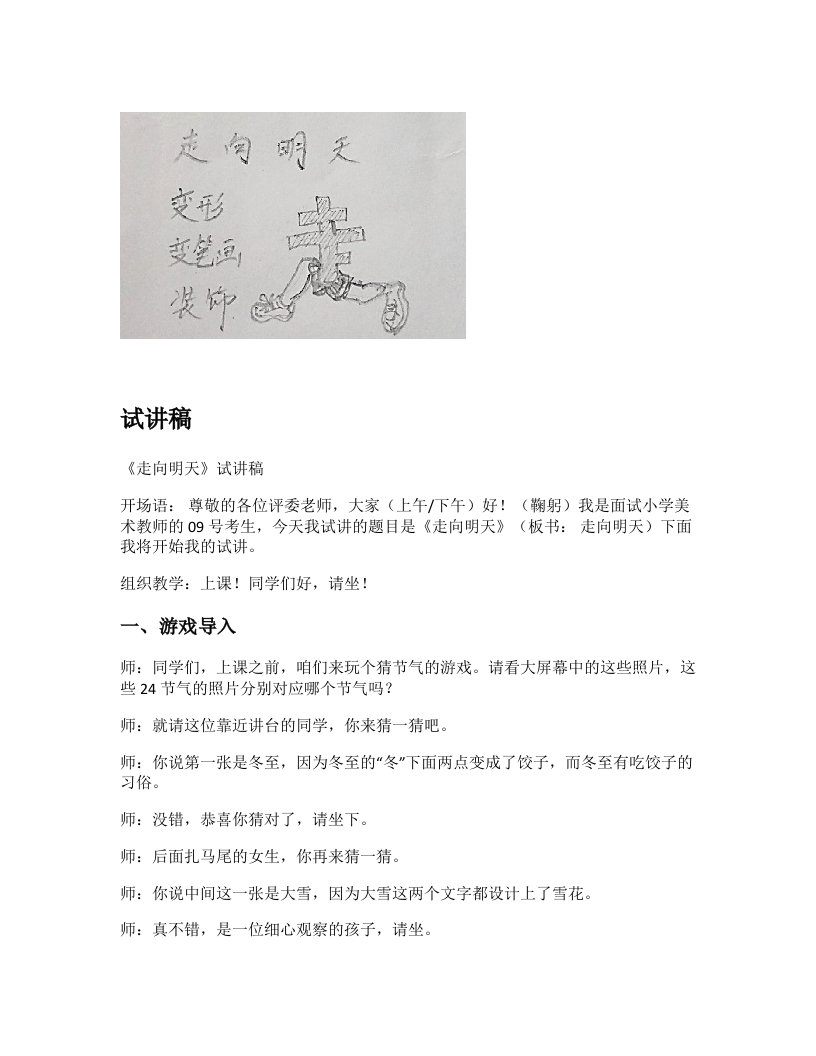 走向明天
变形
变笔画
装饰
走
试讲稿
《走向明天》试讲稿
开场语： 尊敬的各位评委老师，大家（上午/下午）好！（鞠躬）我是面试小学美
术教师的 09 号考生，今天我试讲的题目是《走向明天》（板书： 走向明天）下面
我将开始我的试讲。
组织教学：上课！同学们好，请坐！
一、游戏导入
师：同学们，上课之前，咱们来玩个猜节气的游戏。请看大屏幕中的这些照片，这
些 24 节气的照片分别对应哪个节气吗？
师：就请这位靠近讲台的同学，你来猜一猜吧。
师：你说第一张是冬至，因为冬至的“冬”下面两点变成了饺子，而冬至有吃饺子的
习俗。
师：没错，恭喜你猜对了，请坐下。
师：后面扎马尾的女生，你再来猜一猜。
师：你说中间这一张是大雪，因为大雪这两个文字都设计上了雪花。
师：真不错，是一位细心观察的孩子，请坐。